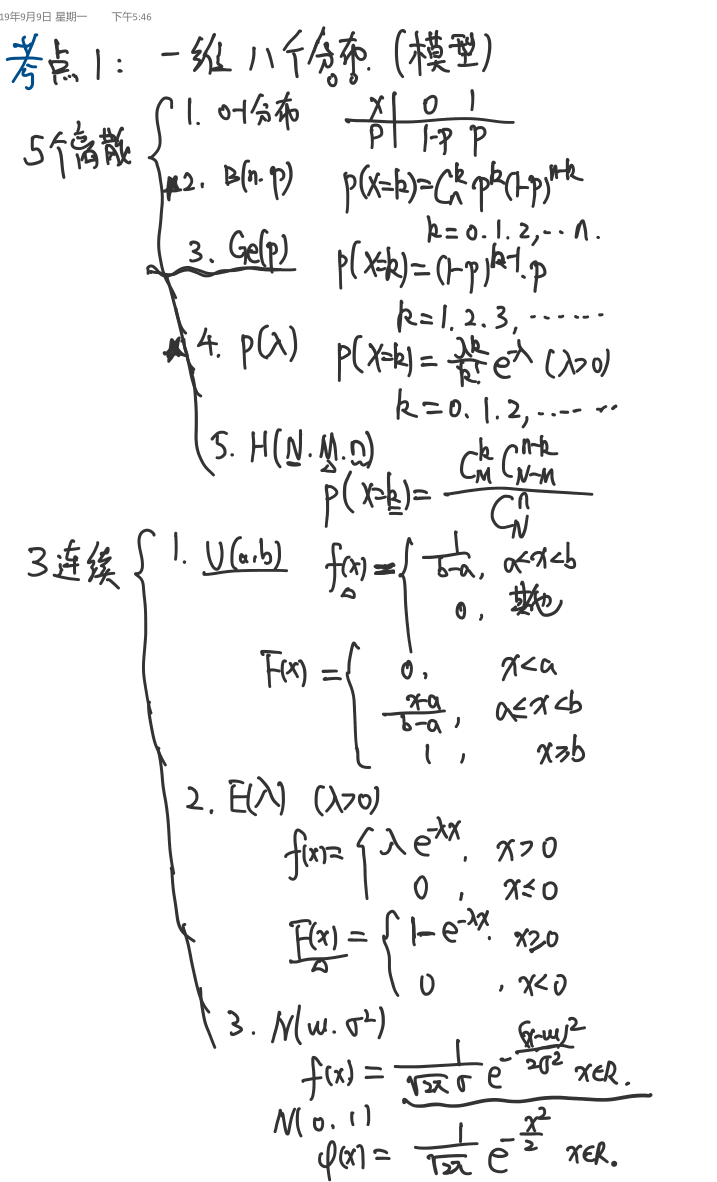 19年9月9日 星期一 下午5:46
考点1: 一维 八个分布. (模型)
5个离散
1. 0-1分布 X | 0 1
P | 1-p p
2. B(n.p) P(X=k)=C_n^k p^k(1-p)^{n-k}
k=0.1.2,…n.
3. Ge(p) P(X=k)=(1-p)^{k-1}.p
k=1.2.3,……
4. P(λ) P(X=k)=\frac{λ^k}{k!}e^{-λ} (λ>0)
k=0.1.2,……
5. H(N.M.n)
P(X=k)=\frac{C_M^k C_{N-M}^{n-k}}{C_N^n}
3连续
1. U(a,b) f(x)={\frac{1}{b-a}, a<x<b
0, 其他
F(x)={0, x<a
\frac{x-a}{b-a}, a≤x<b
1, x≥b
2. E(λ) (λ>0)
f(x)={λe^{-λx}, x>0
0, x≤0
F(x)={1-e^{-λx}. x≥0
0, x<0
3. N(μ.σ²)
f(x)=\frac{1}{\sqrt{2π}σ}e^{-\frac{(x-μ)^2}{2σ^2}} x∈R.
N(0.1)
φ(x)=\frac{1}{\sqrt{2π}}e^{-\frac{x^2}{2}} x∈R.